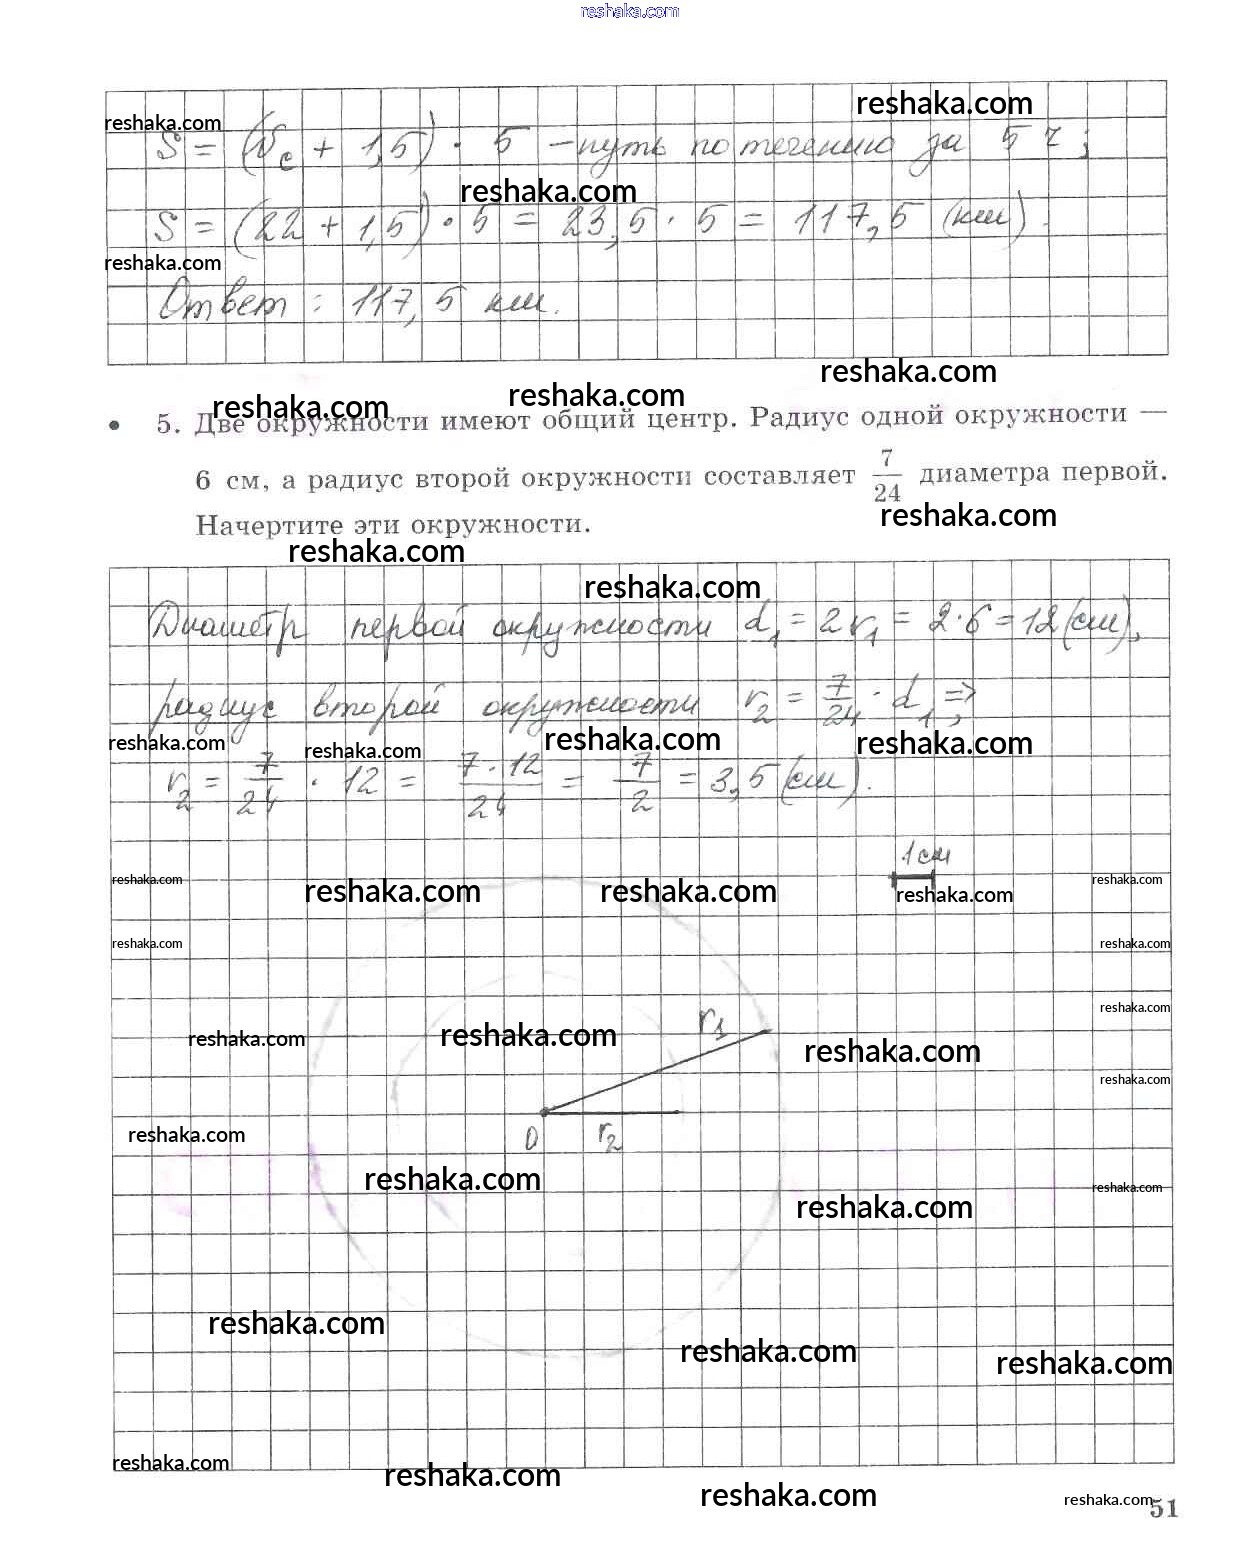 reshaka.com
reshaka.com
reshaka.com
S = (Vс + 1,5) · 5 – путь по течению за 5 ч;
reshaka.com
S = (22 + 1,5) · 5 = 23,5 · 5 = 117,5 (км).
reshaka.com
Ответ : 117,5 км.
reshaka.com
reshaka.com
reshaka.com
• 5. Две окружности имеют общий центр. Радиус одной окружности —
6 см, а радиус второй окружности составляет 7/24 диаметра первой.
reshaka.com
Начертите эти окружности.
reshaka.com
reshaka.com
Диаметр первой окружности d₁ = 2r₁ = 2·6 = 12 (см),
радиус второй окружности r₂ = 7/24 · d₁ ⇒;
reshaka.com reshaka.com reshaka.com reshaka.com
r₂ = 7/24 · 12 = 7·12/24 = 7/2 = 3,5 (см).
1 см
reshaka.com reshaka.com reshaka.com reshaka.com reshaka.com
reshaka.com reshaka.com
reshaka.com
r₁
reshaka.com reshaka.com reshaka.com
reshaka.com
reshaka.com
O r₂
reshaka.com
reshaka.com
reshaka.com
reshaka.com
reshaka.com
reshaka.com
reshaka.com
reshaka.com
reshaka.com
reshaka.com
51